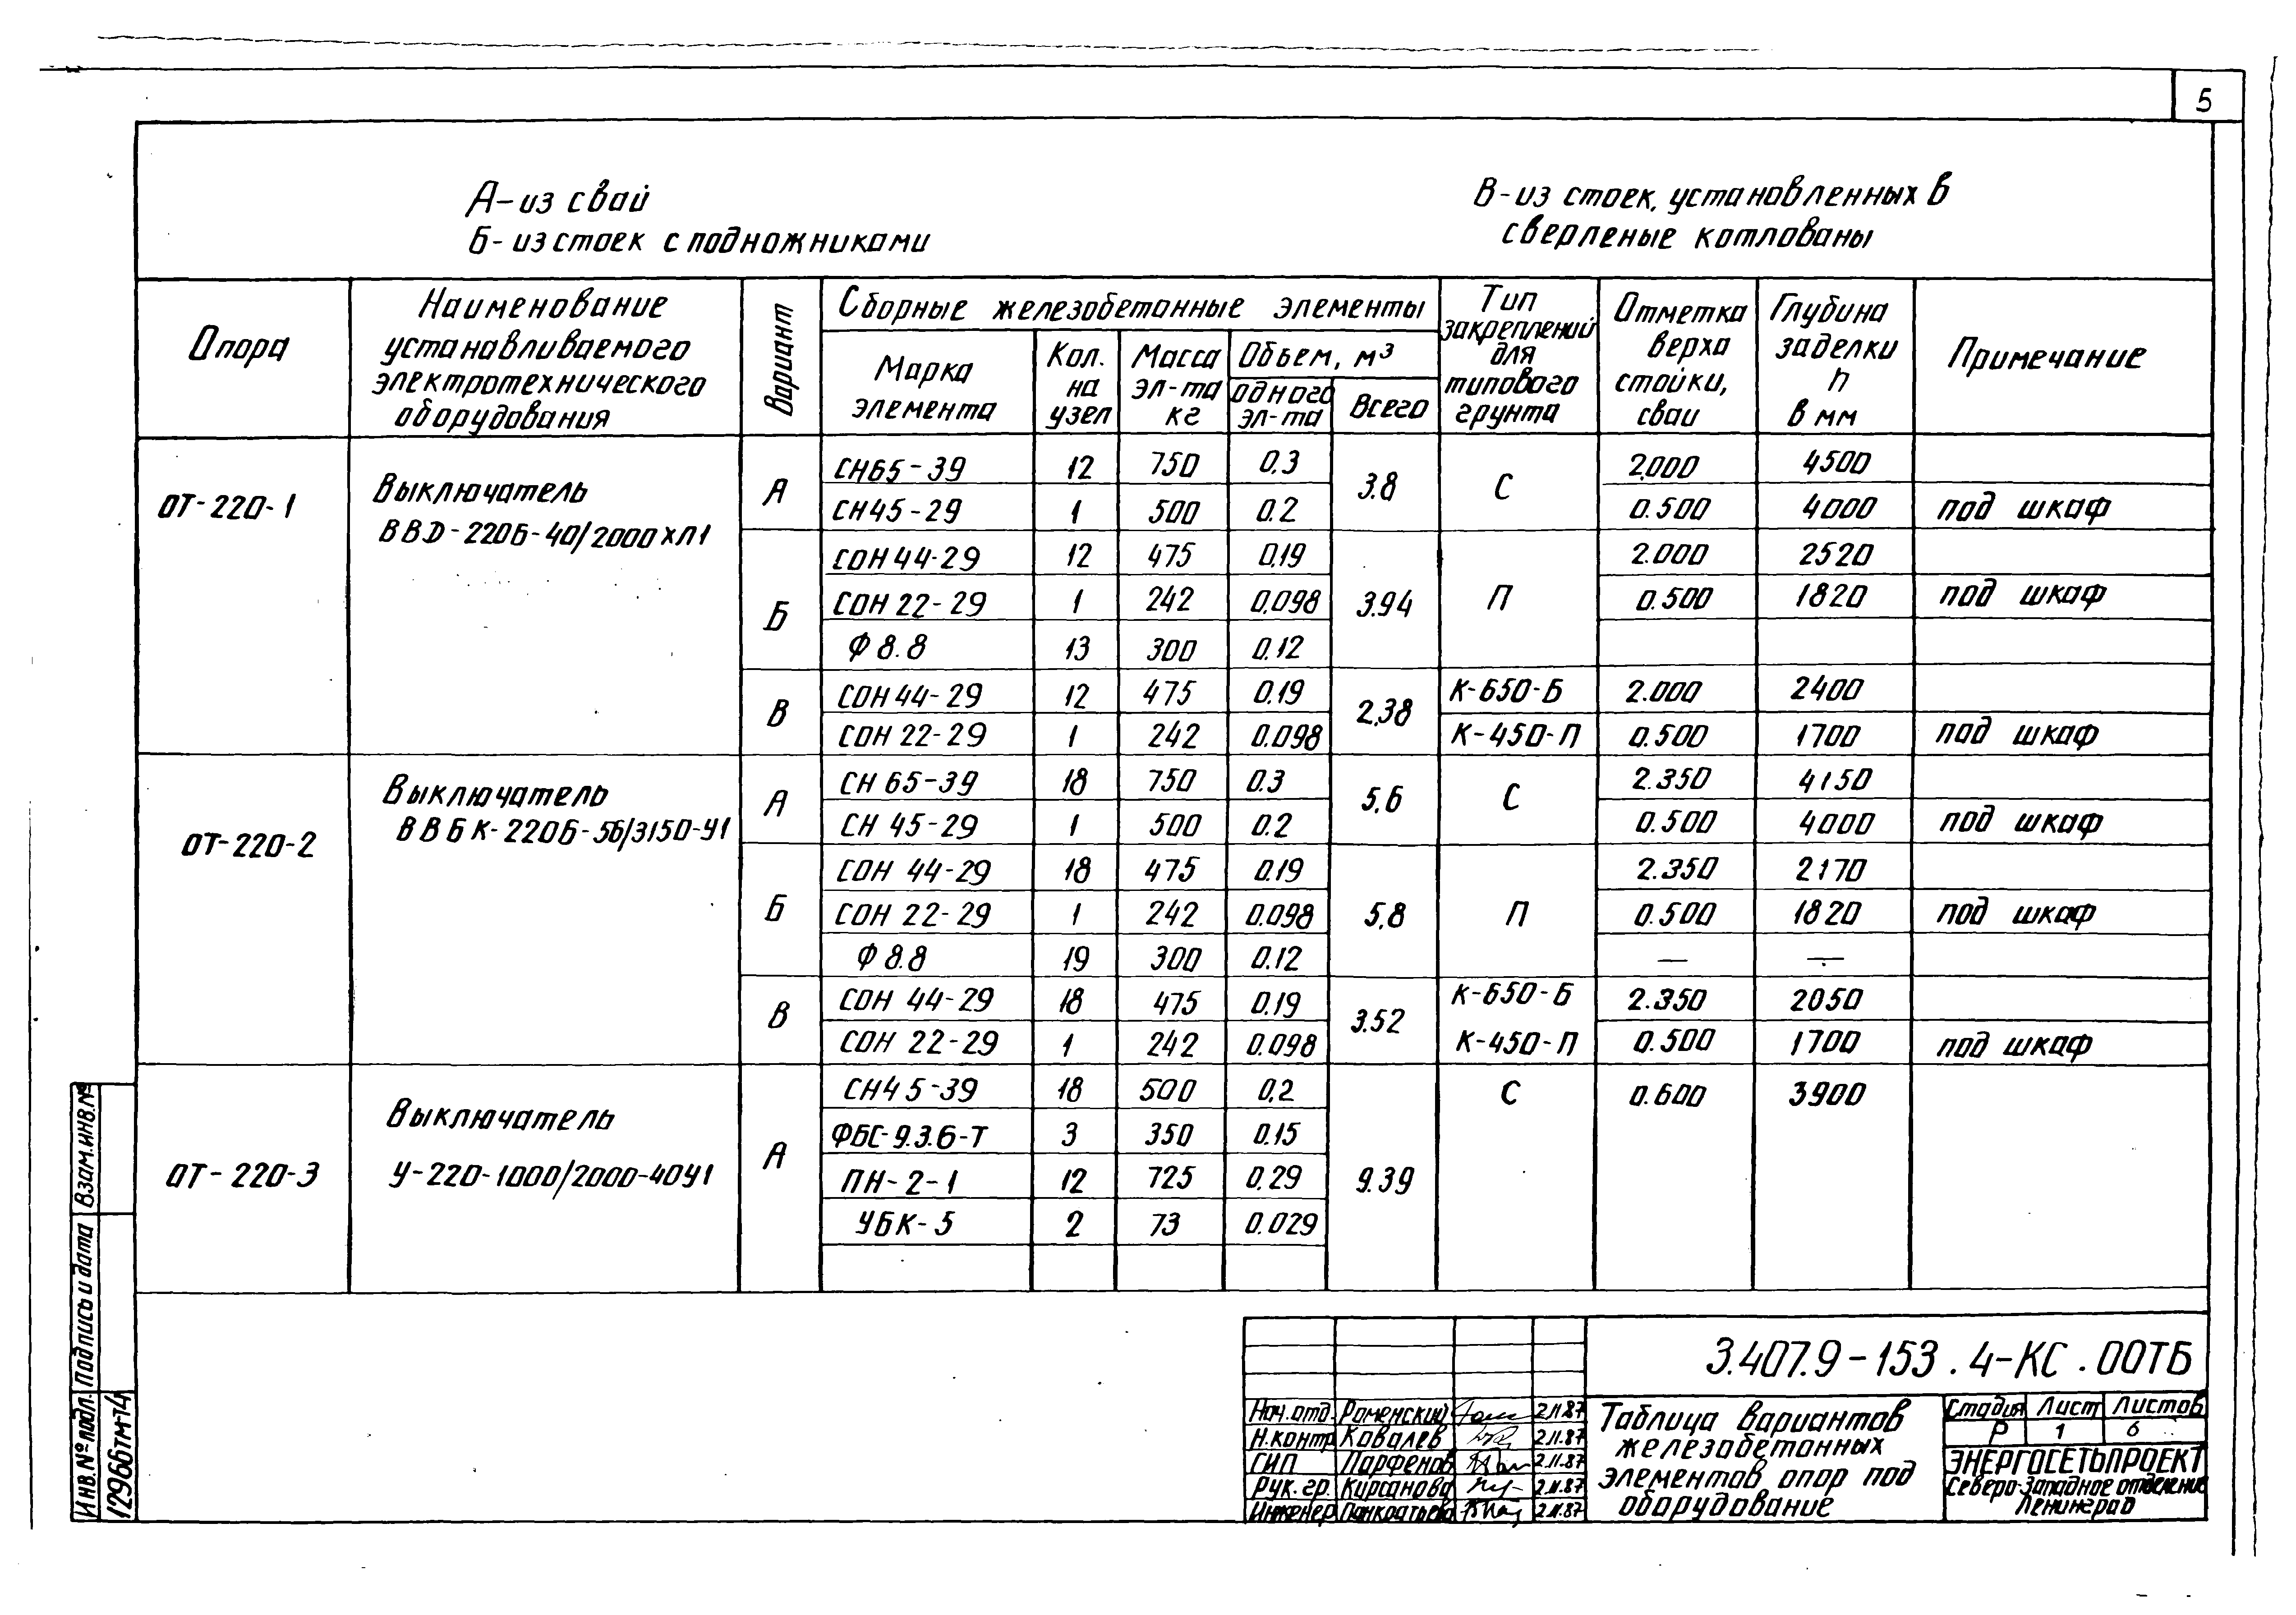 5
А-из свай
Б-из стоек с подножниками
В-из стоек, установленных в
сверленые котлованы
Опора
Наименование
устанавливаемого
электротехнического
оборудования
Вариант
Сборные железобетонные элементы
Марка
элемента
Кол.
на
узел
Масса
эл-та
кг
Объем, м³
одного
эл-та
Всего
Тип
закреплений
для
типового
грунта
Отметка
верха
стойки,
сваи
Глубина
заделки
h
в мм
Примечание
ОТ-220-1
Выключатель
ВВД-220Б-40/2000ХЛ1
А
СН65-39 12 750 0.3 3.8 С 2.000 4500
СН45-29 1 500 0.2 0.500 4000 под шкаф
Б
СОН 44-29 12 475 0.19 2.000 2520
СОН 22-29 1 242 0.098 3.94 П 0.500 1820 под шкаф
Ф 8.8 13 300 0.12
В
СОН 44-29 12 475 0.19 2,38 К-650-Б 2.000 2400
СОН 22-29 1 242 0.098 К-450-П 0.500 1700 под шкаф
ОТ-220-2
Выключатель
ВВБК-220Б-56/3150-У1
А
СН 65-39 18 750 0.3 5,6 С 2.350 4150
СН 45-29 1 500 0.2 0.500 4000 под шкаф
Б
СОН 44-29 18 475 0.19 2.350 2170
СОН 22-29 1 242 0.098 5,8 П 0.500 1820 под шкаф
Ф 8.8 19 300 0.12 — —
В
СОН 44-29 18 475 0.19 3.52 К-650-Б 2.350 2050
СОН 22-29 1 242 0.098 К-450-П 0.500 1700 под шкаф
ОТ-220-3
Выключатель
У-220-1000/2000-40У1
А
СН45-39 18 500 0,2 С 0.600 3900
ФБС-9.3.6-Т 3 350 0.15
ПН-2-1 12 725 0.29 9.39
УБК-5 2 73 0.029
Взам.инв.№
Подпись и дата
Инв.№подл.
12966тм-т4
3.407.9-153.4-КС.00ТБ
Нач.отд. Роменский 2.11.87
Н.контр Ковалев 2.11.87
ГИП Парфенов 2.11.87
Рук.гр. Кирсанова 2.11.87
Инженер Панкратьева 2.11.87
Таблица вариантов
железобетонных
элементов опор под
оборудование
Стадия Лист Листов
Р 1 6
ЭНЕРГОСЕТЬПРОЕКТ
Северо-Западное отделение
Ленинград